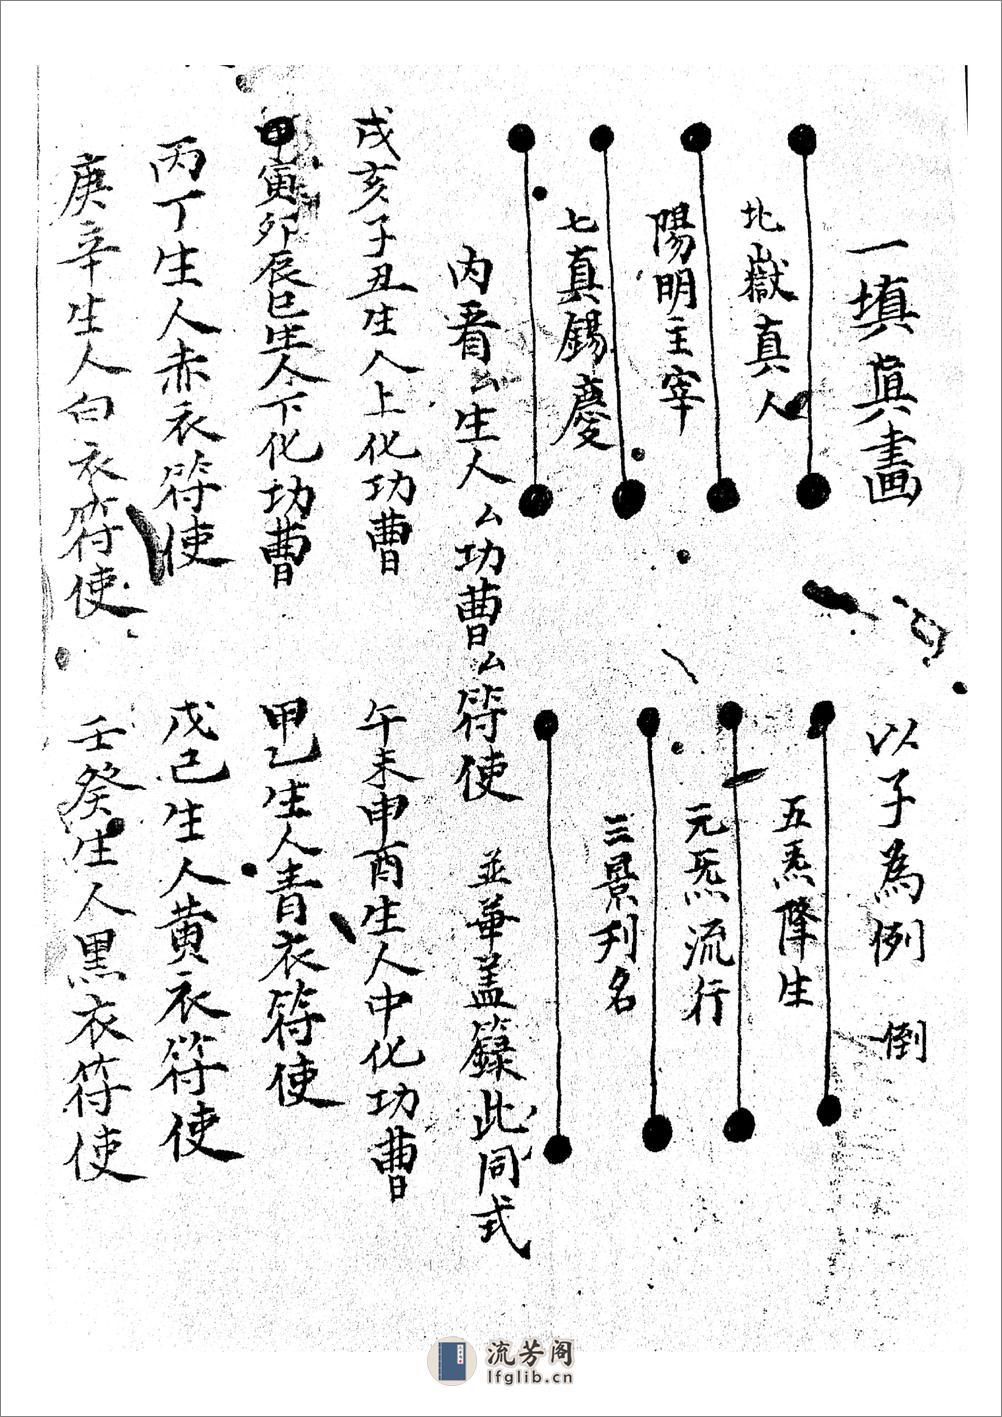 一填眞畫　以子為例　倒
北嶽真人　五炁降生
陽明主宰　元炁流行
七真錫慶　三景刋名
内看厶生人厶功曹厶符使　並華盖籙此同式
戌亥子丑生人上化功曹　午未申酉生人中化功曹
寅卯辰巳生人下化功曹　甲乙生人青衣符使
丙丁生人赤衣符使　戊己生人黄衣符使
庚辛生人白衣符使　壬癸生人黒衣符使
流芳阁
lfglib.cn